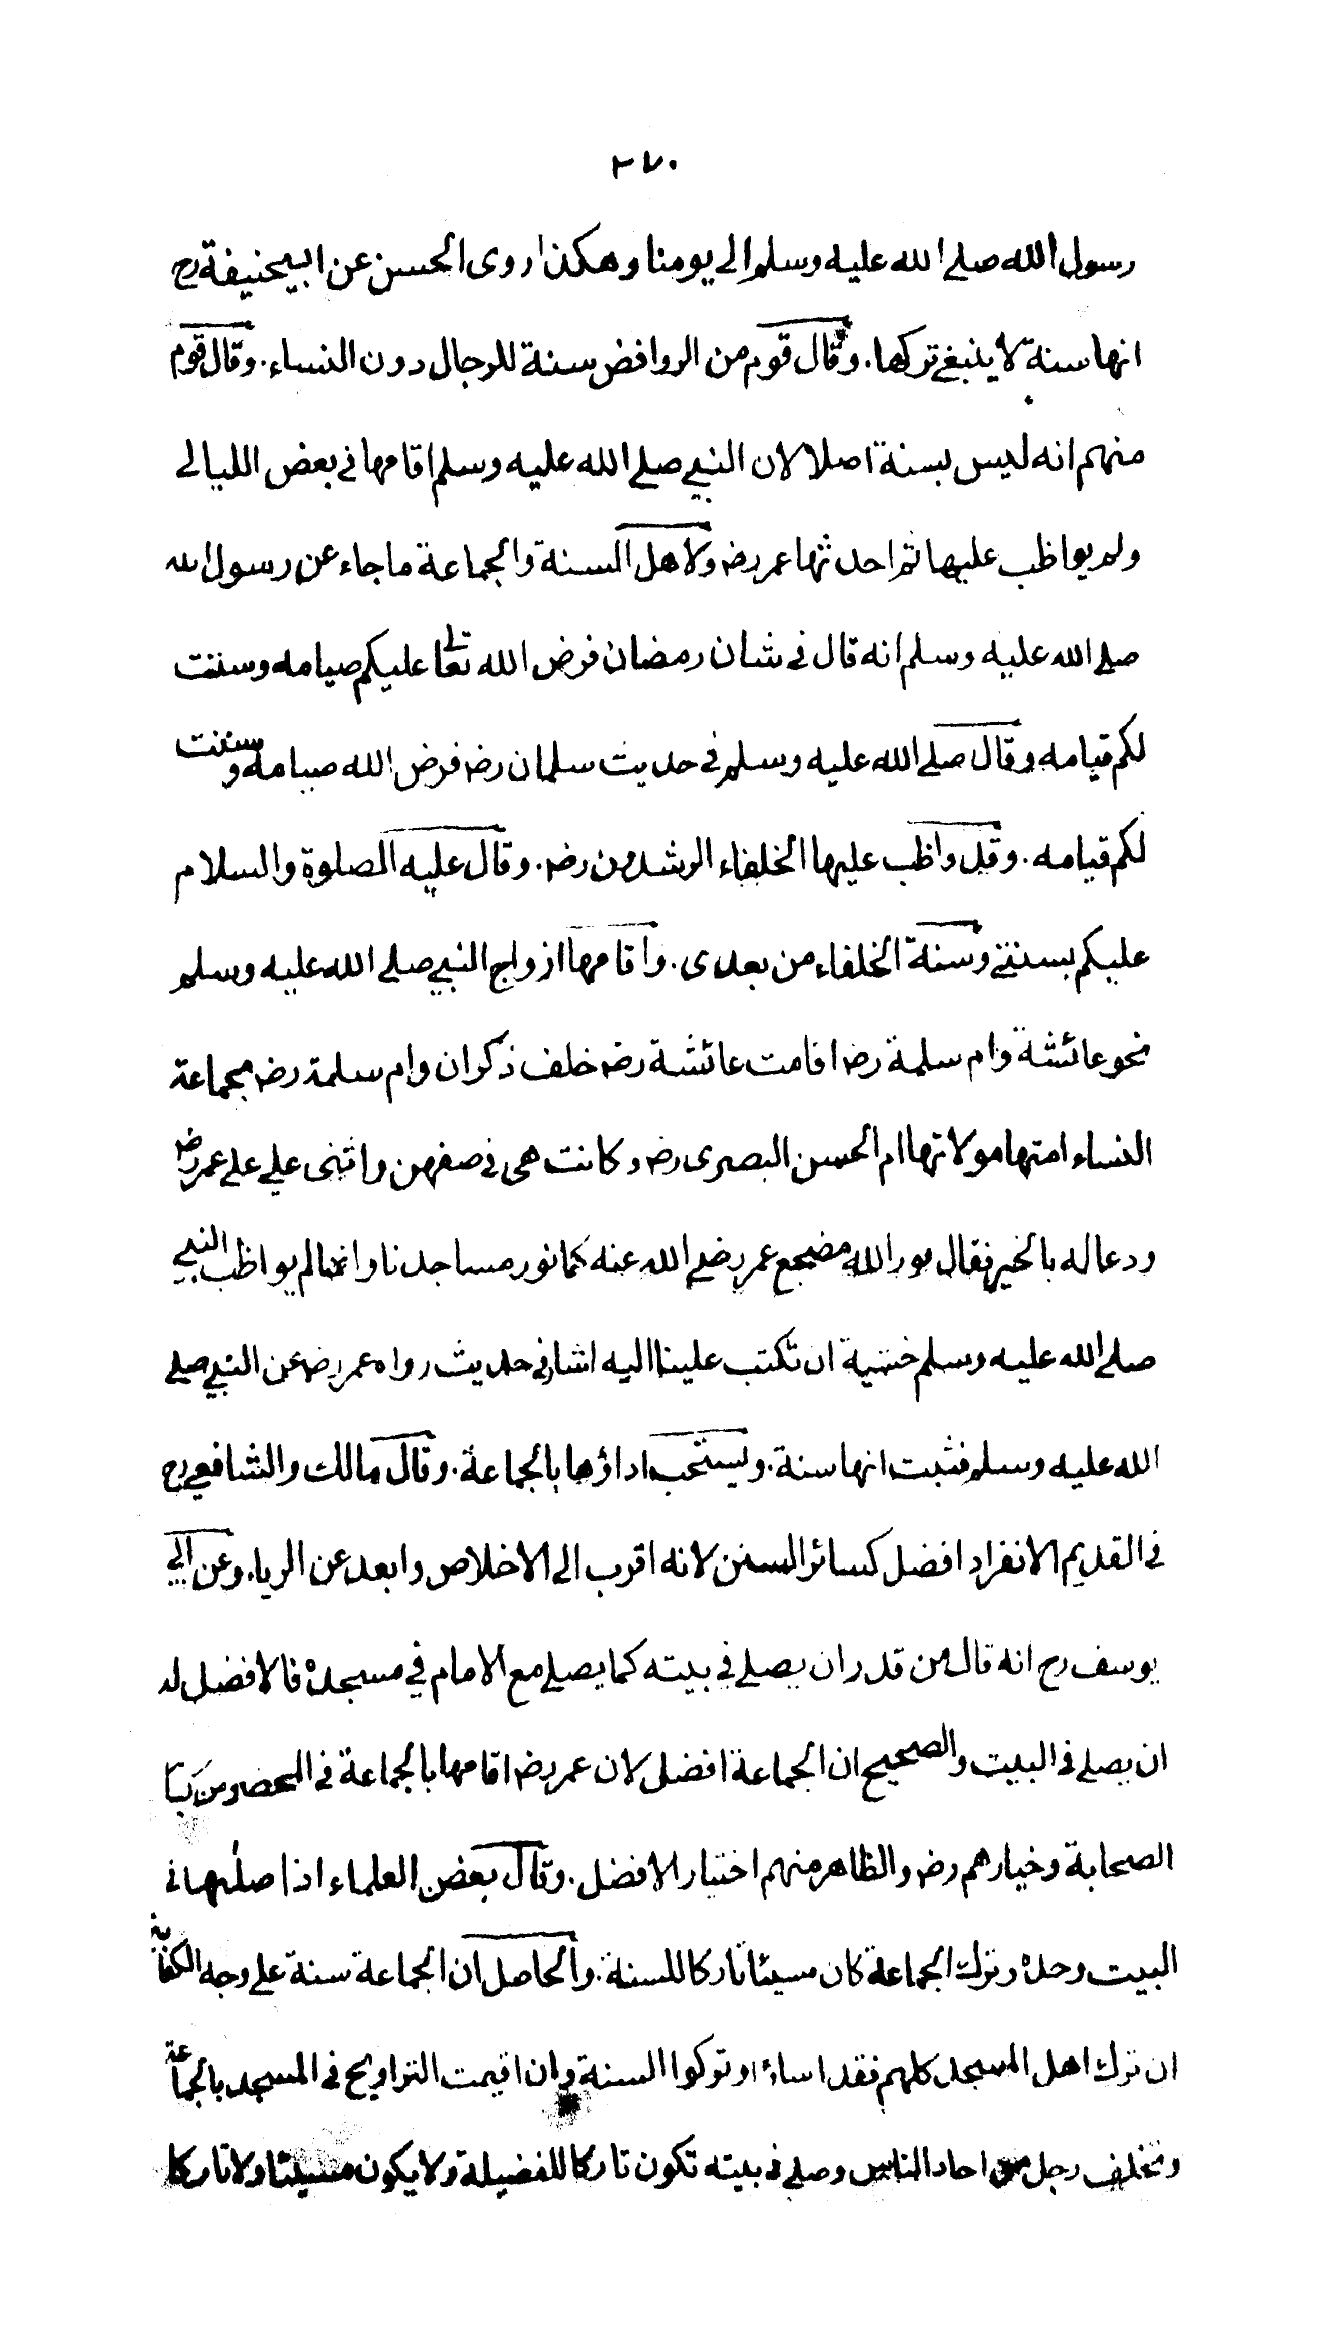 ٢٧٠
رسول الله صلے الله عليه وسلم الى يومنا وهكذا روى الحسن عن ابيحنيفة رح
انها سنة لا ينبغے تركها. وقال قوم من الروافض سنة للرجال دون النساء. وقال قوم
منهم انه ليس بسنة اصلا لان النبے صلے الله عليه وسلم اقامها فى بعض الليالے
ولم يواظب عليها ثم احدثها عمر رضہ ولاهل السنة والجماعة ما جاء عن رسول الله
صلے الله عليه وسلم انه قال فى شان رمضان فرض الله تعالى عليكم صيامه وسننت
لكم قيامه وقال صلے الله عليه وسلم فى حديث سلمان رضہ فرض الله صيامه وسننت
لكم قيامه. وقد واظب عليها الخلفاء الرشدمن رضہ. وقال عليه الصلوة والسلام
عليكم بسنتے وسنة الخلفاء من بعدى. واقامها ازواج النبے صلے الله عليه وسلم
نحو عائشة وام سلمة رضہ اقامت عائشة رضہ خلف ذكوان وام سلمة رضہ بجماعة
النساء امتها مولاتها ام الحسن البصرى رضہ وكانت هى فى صفهن واثنى علے علے عمر رض
ودعا له بالخير فقال نور الله مضجع عمر رضے الله عنه كما نور مساجدنا وانما لم يواظب النبے
صلے الله عليه وسلم خشية ان تكتب علينا اليه اشار فى حديث رواه عمر رضہ عن النبے صلے
الله عليه وسلم فثبت انها سنة. ويستحب اداؤها بالجماعة. وقال مالك والشافعے رح
فى القديم الانفراد افضل كسائر السنن لانه اقرب الى الاخلاص وابعد عن الرياء. وعن ابے
يوسف رح انه قال من قدر ان يصلے فى بيته كما يصلے مع الامام فى مسجده فالافضل له
ان يصلے فى البيت والصحيح ان الجماعة افضل لان عمر رضہ اقامها بالجماعة فى المحضر من كبا
الصحابة وخيارهم رضہ والظاهر منهم اختيار الافضل. وقال بعض العلماء اذا صليها فى
البيت وحده وترك الجماعة كان مسيئا تاركا للسنة. والحاصل ان الجماعة سنة على وجه الكفاية
ان ترك اهل المسجد كلهم فقد اساؤا وتركوا السنة وان اقيمت التراويح فى المسجد بالجماعة
وتخلف رجل من احاد الناس وصلے فى بيته تكون تاركا للفضيلة ولا يكون مسيئا ولا تاركا